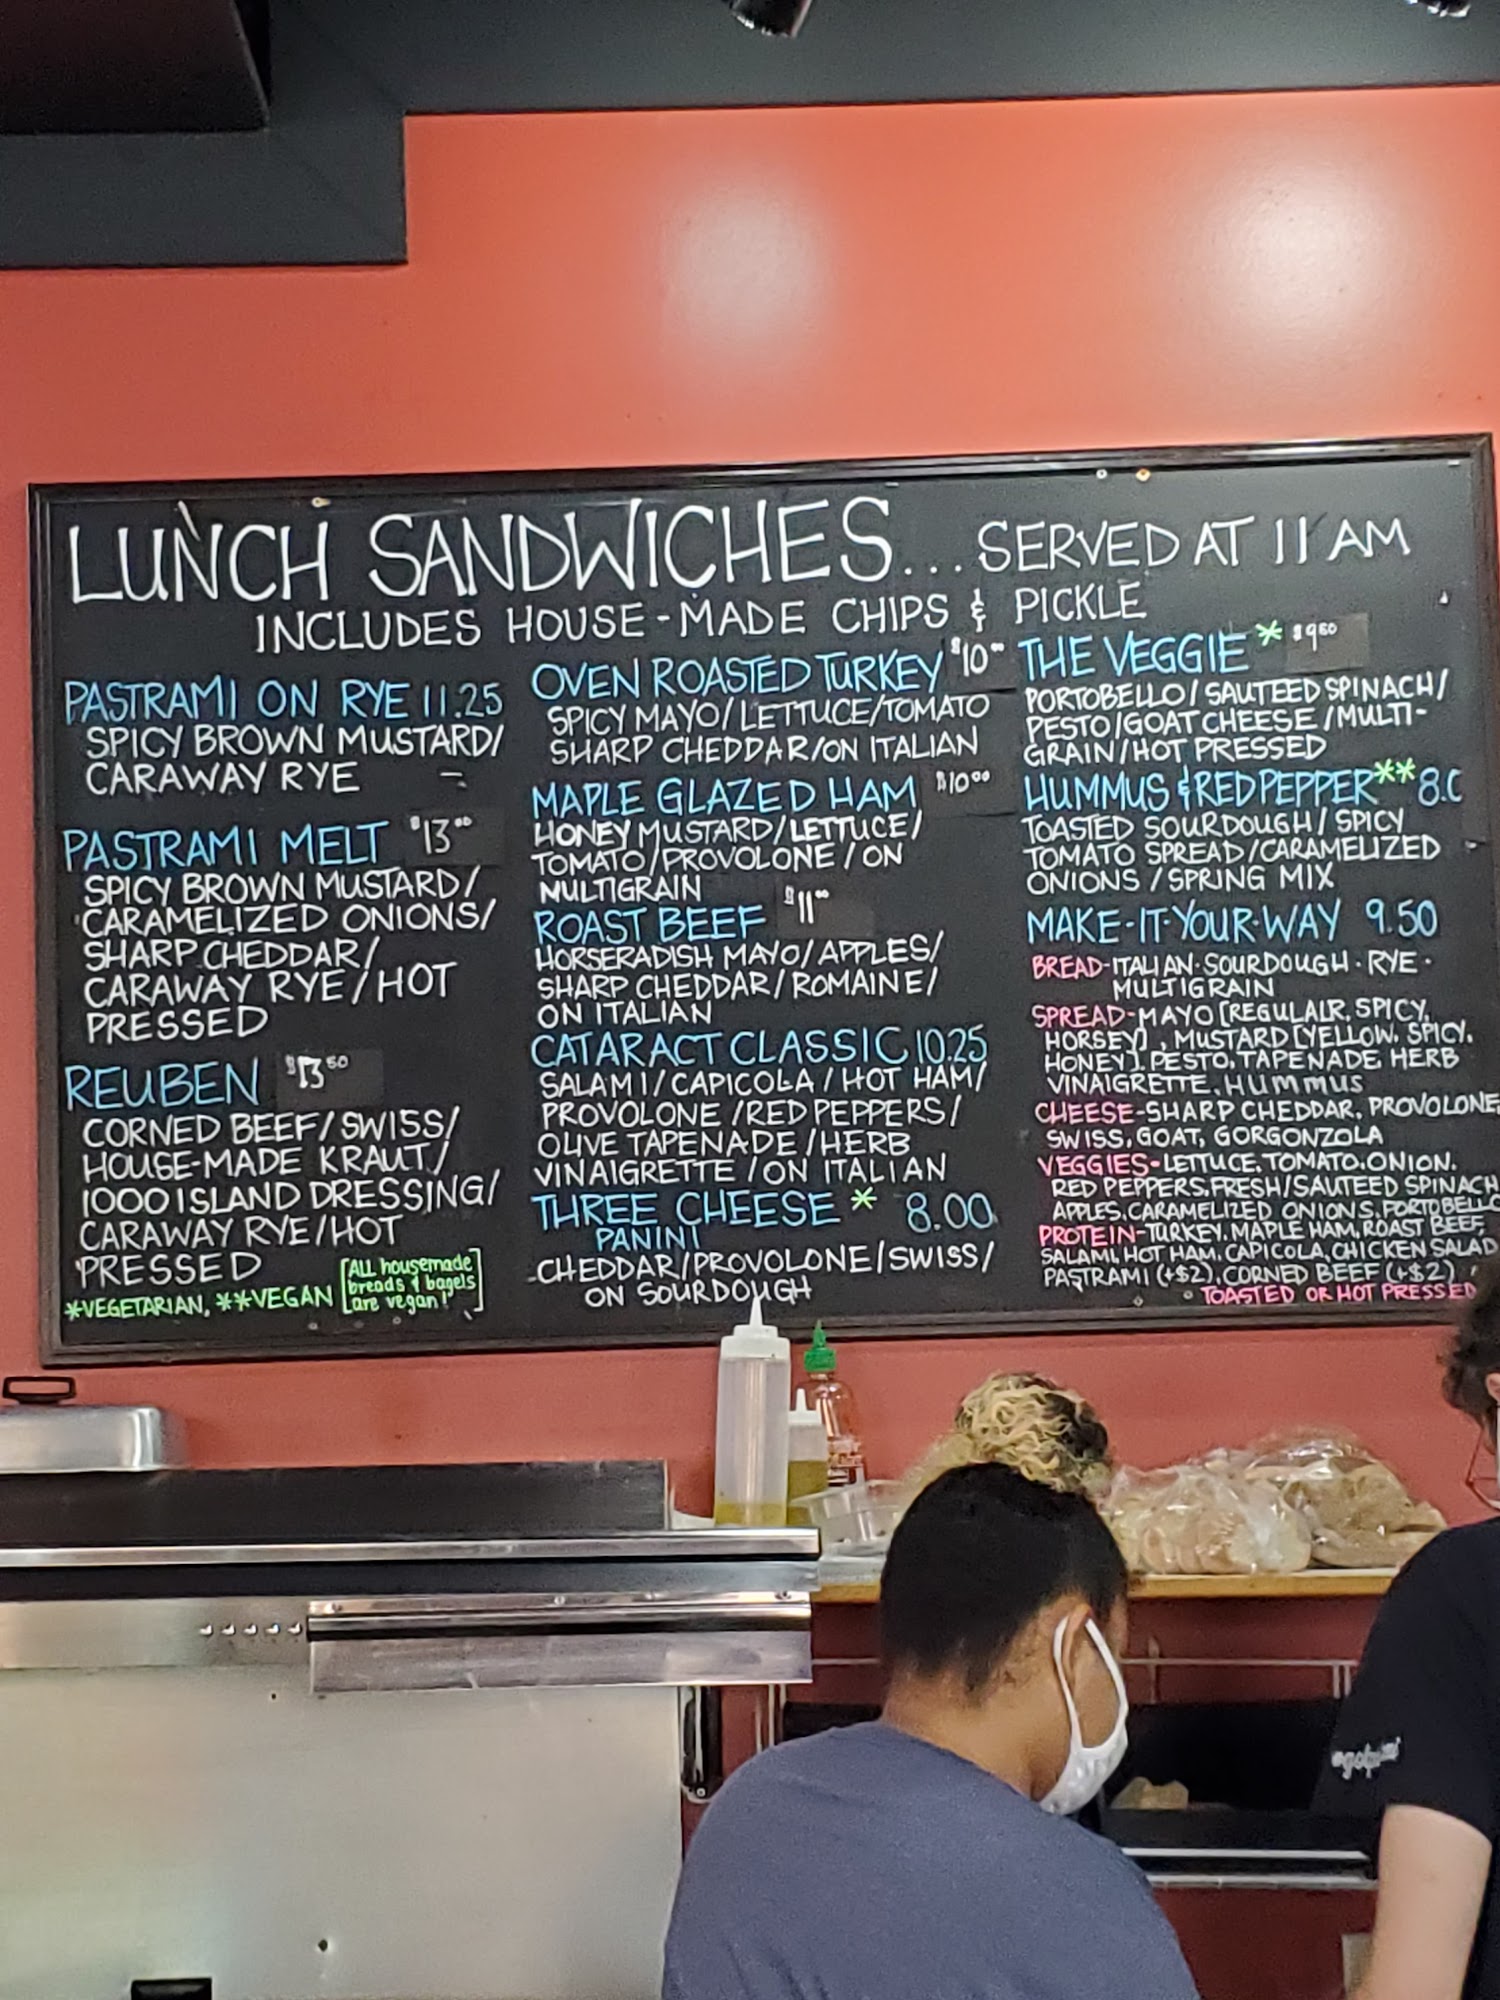 LUNCH SANDWICHES...SERVED AT 11 AM
INCLUDES HOUSE-MADE CHIPS & PICKLE
PASTRAMI ON RYE 11.25
SPICY BROWN MUSTARD/
CARAWAY RYE
PASTRAMI MELT $13.00
SPICY BROWN MUSTARD/
CARAMELIZED ONIONS/
SHARP CHEDDAR/
CARAWAY RYE/HOT
PRESSED
REUBEN $13.50
CORNED BEEF/SWISS/
HOUSE-MADE KRAUT/
1000 ISLAND DRESSING/
CARAWAY RYE/HOT
PRESSED
*VEGETARIAN, **VEGAN
[ALL housemade
breads & bagels
are vegan!]
OVEN ROASTED TURKEY $10.00
SPICY MAYO/LETTUCE/TOMATO
SHARP CHEDDAR/ON ITALIAN
MAPLE GLAZED HAM $10.00
HONEY MUSTARD/LETTUCE/
TOMATO/PROVOLONE/ON
MULTIGRAIN
ROAST BEEF $11.00
HORSERADISH MAYO/APPLES/
SHARP CHEDDAR/ROMAINE/
ON ITALIAN
CATARACT CLASSIC 10.25
SALAMI/CAPICOLA/HOT HAM/
PROVOLONE/RED PEPPERS/
OLIVE TAPENADE/HERB
VINAIGRETTE/ON ITALIAN
THREE CHEESE * 8.00
PANINI
CHEDDAR/PROVOLONE/SWISS/
ON SOURDOUGH
THE VEGGIE * $9.50
PORTOBELLO/SAUTEED SPINACH/
PESTO/GOAT CHEESE/MULTI-
GRAIN/HOT PRESSED
HUMMUS & RED PEPPER** 8.0
TOASTED SOURDOUGH/SPICY
TOMATO SPREAD/CARAMELIZED
ONIONS/SPRING MIX
MAKE-IT-YOUR-WAY 9.50
BREAD-ITALIAN·SOURDOUGH·RYE·
MULTIGRAIN
SPREAD-MAYO [REGULAR, SPICY,
HORSEY], MUSTARD [YELLOW, SPICY,
HONEY], PESTO, TAPENADE, HERB
VINAIGRETTE, HUMMUS
CHEESE-SHARP CHEDDAR, PROVOLONE,
SWISS, GOAT, GORGONZOLA
VEGGIES-LETTUCE, TOMATO, ONION,
RED PEPPERS, FRESH/SAUTEED SPINACH
APPLES, CARAMELIZED ONIONS, PORTOBELLO
PROTEIN-TURKEY, MAPLE HAM, ROAST BEEF,
SALAMI, HOT HAM, CAPICOLA, CHICKEN SALAD
PASTRAMI (+$2), CORNED BEEF (+$2)
TOASTED OR HOT PRESSED